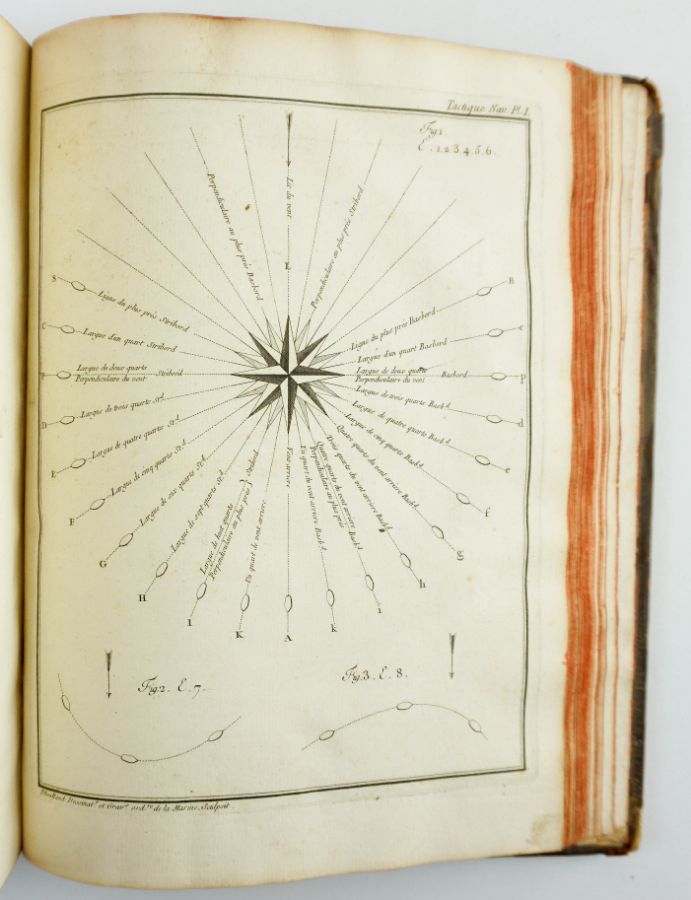 Tactique Nav. Pl. I.
Fig. 1.
E. 1. 2. 3. 4. 5. 6.
Lit du vent
L
Perpendiculaire au plus près Basbord
Perpendiculaire au plus près Stribord
S
Ligne du plus près Stribord
C
Largue d'un quart Stribord
Largue de deux quarts
Perpendiculaire du vent
Stribord
D
Largue de trois quarts St.d
E
Largue de quatre quarts St.d
F
Largue de cinq quarts St.d
G
Largue de six quarts St.d
H
Largue de sept quarts St.d
I
Largue de huit quarts
Perpendiculaire au plus près
Stribord
K
Un quart de vent arriere
A
Vent arriere
B
Ligne du plus près Basbord
c
Largue d'un quart Basbord
P
Largue de deux quarts
Perpendiculaire du vent
Basbord
d
Largue de trois quarts Basb.d
e
Largue de quatre quarts Basb.d
f
Largue de cinq quarts Basb.d
g
Quatre quarts du vent arriere Basb.d
h
Trois quarts du vent arriere Basb.d
i
Quatre quarts de vent arriere
Perpendiculaire au plus près
Basb.d
k
Un quart du vent arriere Basb.d
Fig. 2. E. 7.
Fig. 3. E. 8.
Dessinat.r et Grav.r ord.re de la Marine, Sculpsit.